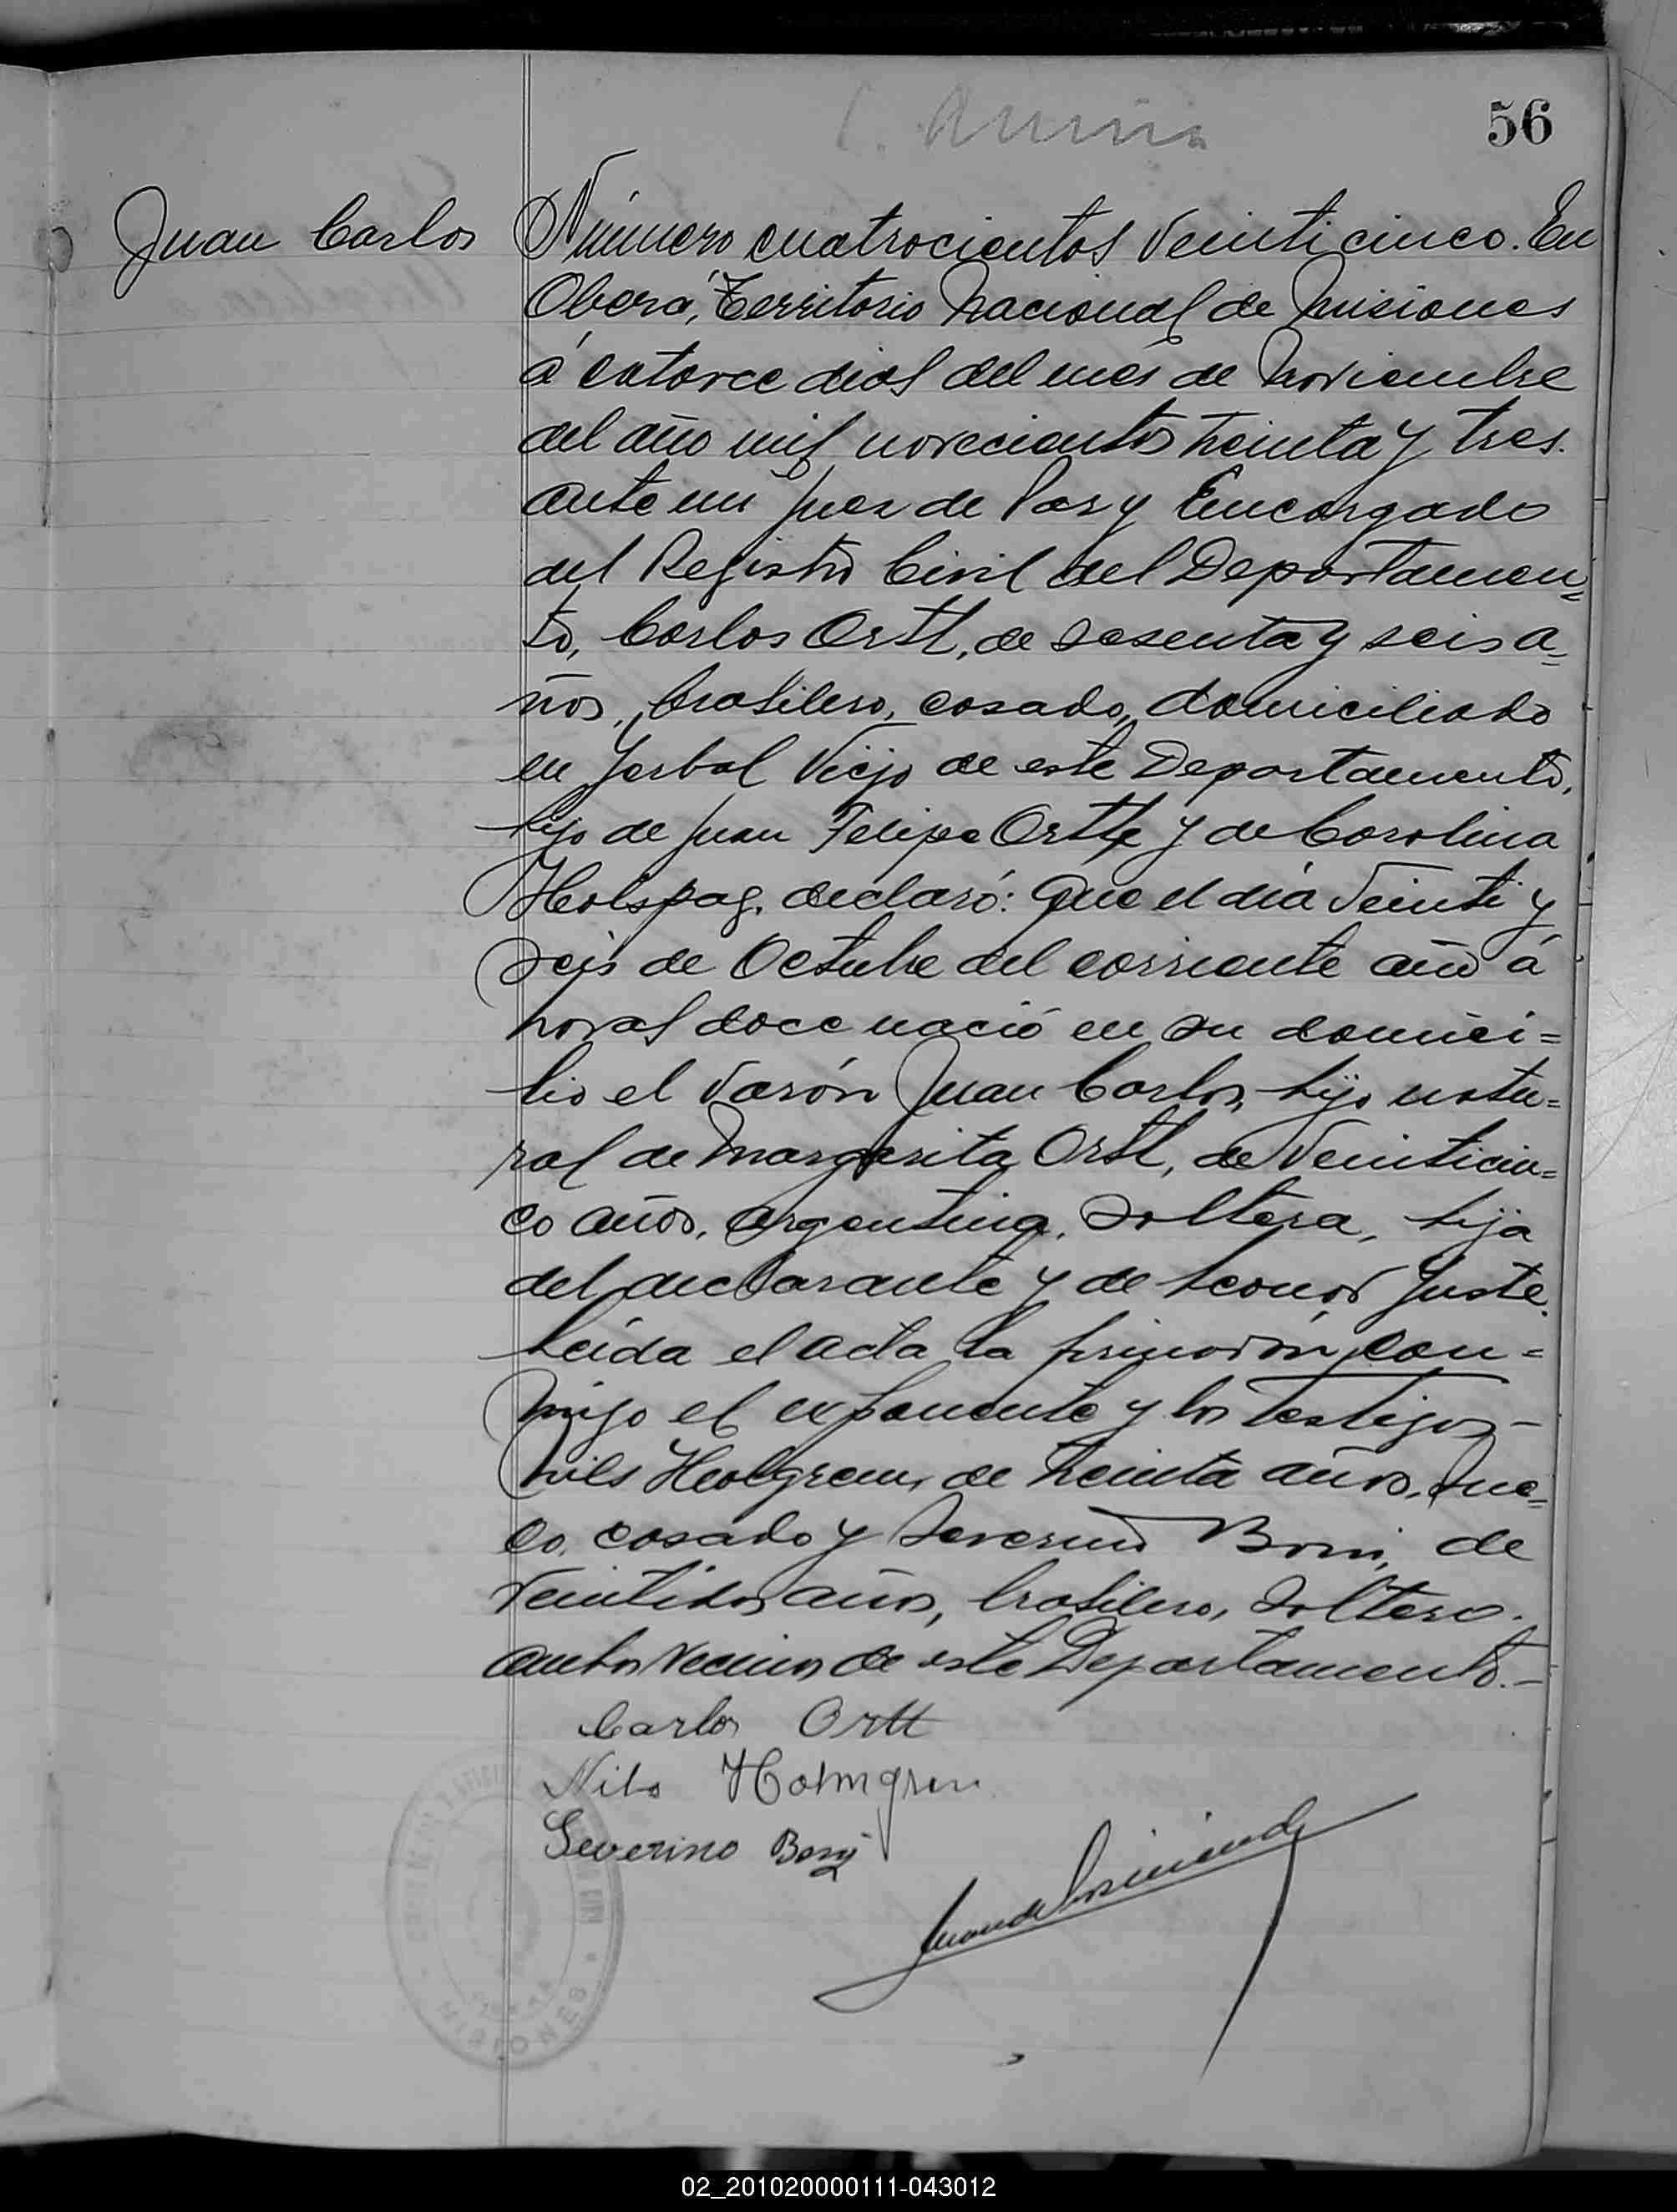 56
Juan Carlos
Número cuatrocientos veinticinco. En
Oberá, Territorio Nacional de Misiones
á catorce dias del mes de Noviembre
del año mil novecientos treinta y tres.
ante mi Juez de Paz y Encargado
del Registro Civil del Departamen=
to, Carlos Ortt, de sesenta y seis a=
ños, brasilero, casado, domiciliado
en Yerbal Viejo de este Departamento,
hijo de Juan Felipe Ortt y de Carolina
declaró: Que el dia veinti y
seis de Octubre del corriente año á
horas doce nació en su domici=
lio el varón Juan Carlos, hijo natu=
ral de Margarita Ortt, de veinticin=
co años, argentina, soltera, hija
del declarante y de Leonor Juste.
Leida el acta la firmaron con=
migo el exponente y los testigos
Nils Holmgren, de treinta años, sue=
co, casado y Severino Bori, de
veintidos años, brasilero, soltero.
ambos vecinos de este Departamento.-
Carlos Ortt
Nils Holmgren
Severino
MISIONES
02_201020000111-043012